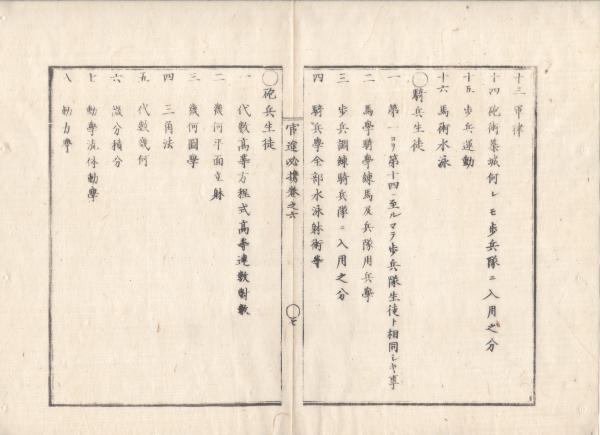 十三 軍律
十四 砲術築城何レモ歩兵隊ニ入用之分
十五 歩兵運動
十六 馬術水泳
◯騎兵生徒
一 第一ヨリ第十四ニ至ルマテ歩兵隊生徒ト相同シキ事
二 馬學騎學練馬及兵隊用兵學
三 歩兵調練騎兵隊ニ入用之分
四 騎兵學全部水泳射術等
官途必携巻之六
◯七
◯砲兵生徒
一 代数高等方程式高等連数対数
二 幾何平面立躰
三 幾何圖學
四 三角法
五 代数幾何
六 微分積分
七 動學流体動學
八 動力學